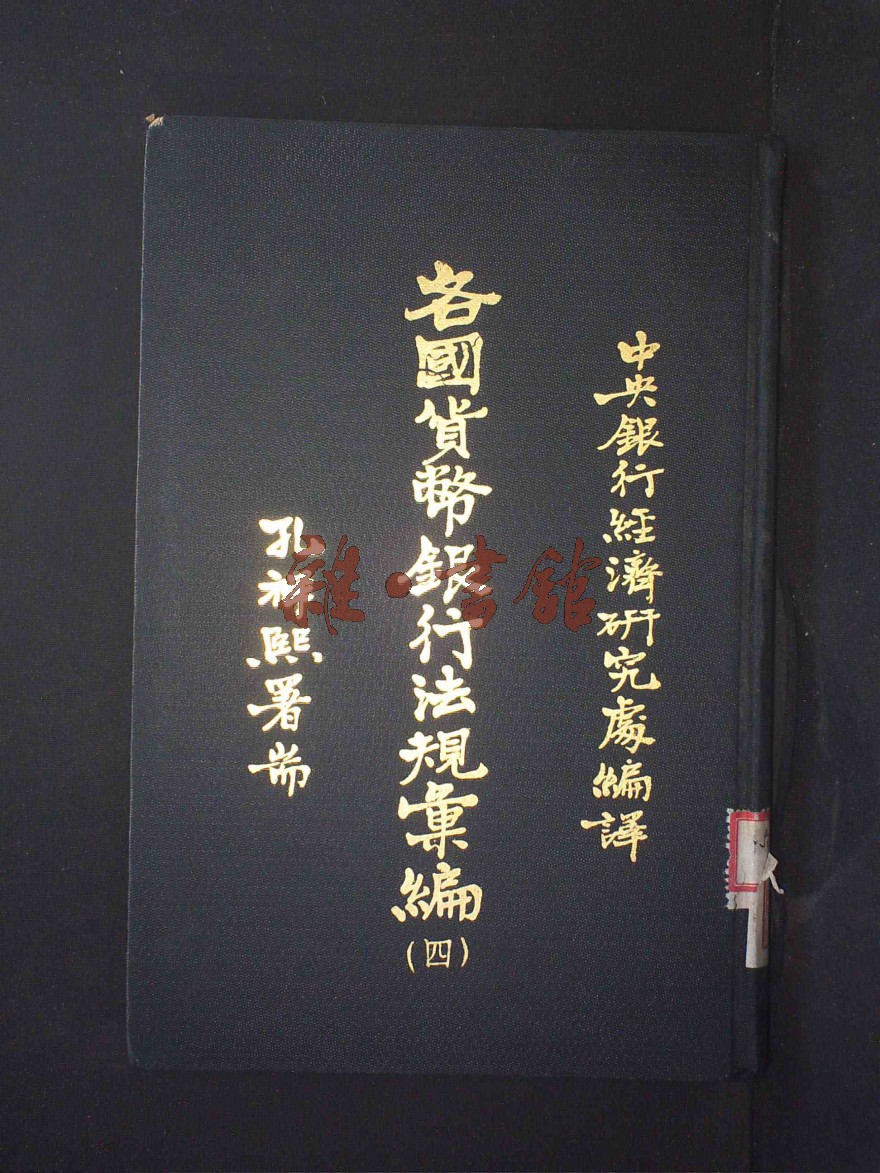 中央銀行經濟研究處編譯
各國貨幣銀行法規彙編
(四)
孔祥熙署耑
雜·書館